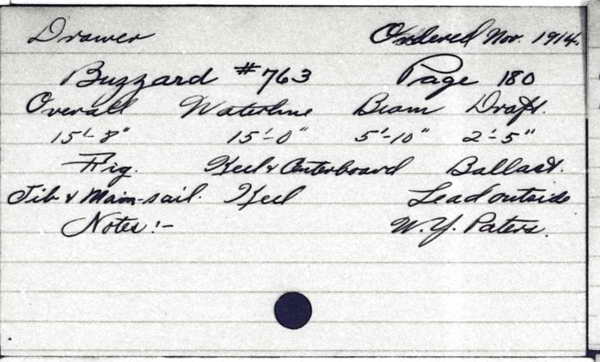 Drawer Ordered Nov. 1914.
Buzzard #763 Page 180
Overall Waterline Beam Draft.
15'-8" 15'-0" 5'-10" 2'-5"
Rig. Keel & Centerboard Ballast.
Jib & Main-sail. Keel Lead outside
Notes:- W. Y. Paters.